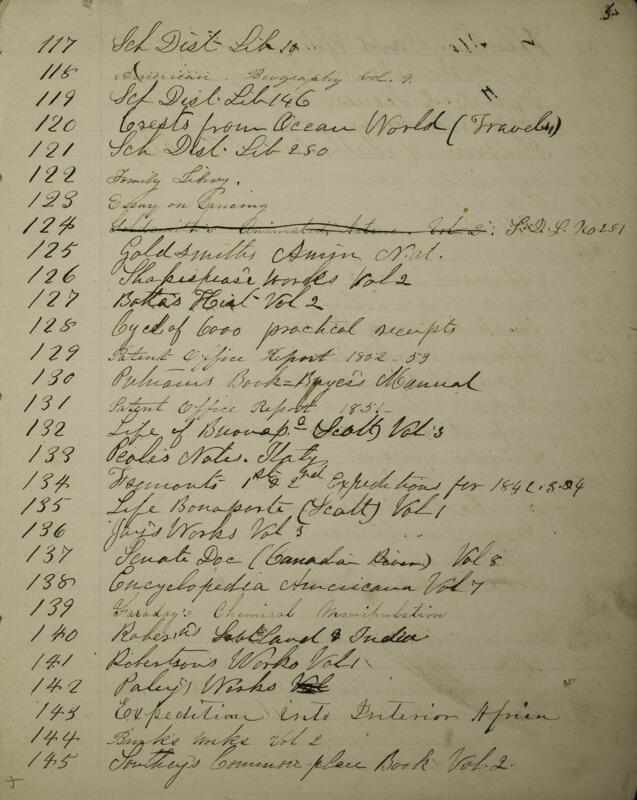 117 Sch Dist Lib 10
118 American Biography Vol. 9.
119 Sch Dist. Lib 146
120 Crests from Ocean World (Travels)
121 Sch Dist. Lib 250
122 Family Library.
123 Essay on Dancing
124 Goldsmith's Animated Nature Vol 2. S. D. L. No 251
125 Goldsmiths Anim Nat.
126 Shakespear's works Vol 2
127 Bottas Hist Vol 2
128 Cycl of 6000 practical receipts
129 Patent Office Report 1852-53
130 Putnams Book=Buyer's Manual
131 Patent Office Report 1851-
132 Life of Buonap. (Scott) Vol 3
133 Peale's Notes. Italy
134 Fremont's 1st & 2nd Expeditions for 1842.3.
135 Life Bonaparte (Scott) Vol 1
136 Jay's Works Vol 3
137 Senate Doc (Canadian River) Vol 8
138 Encyclopedia Americana Vol 7
139 Faraday's Chemical Manipulation
140 Scotland & India
141 Robertsons Works Vol 1
142 Paley's Works Vol
143 Expedition into Interior Africa
144 Burk's works Vol 2
145 Southey's Common-place Book Vol. 2.